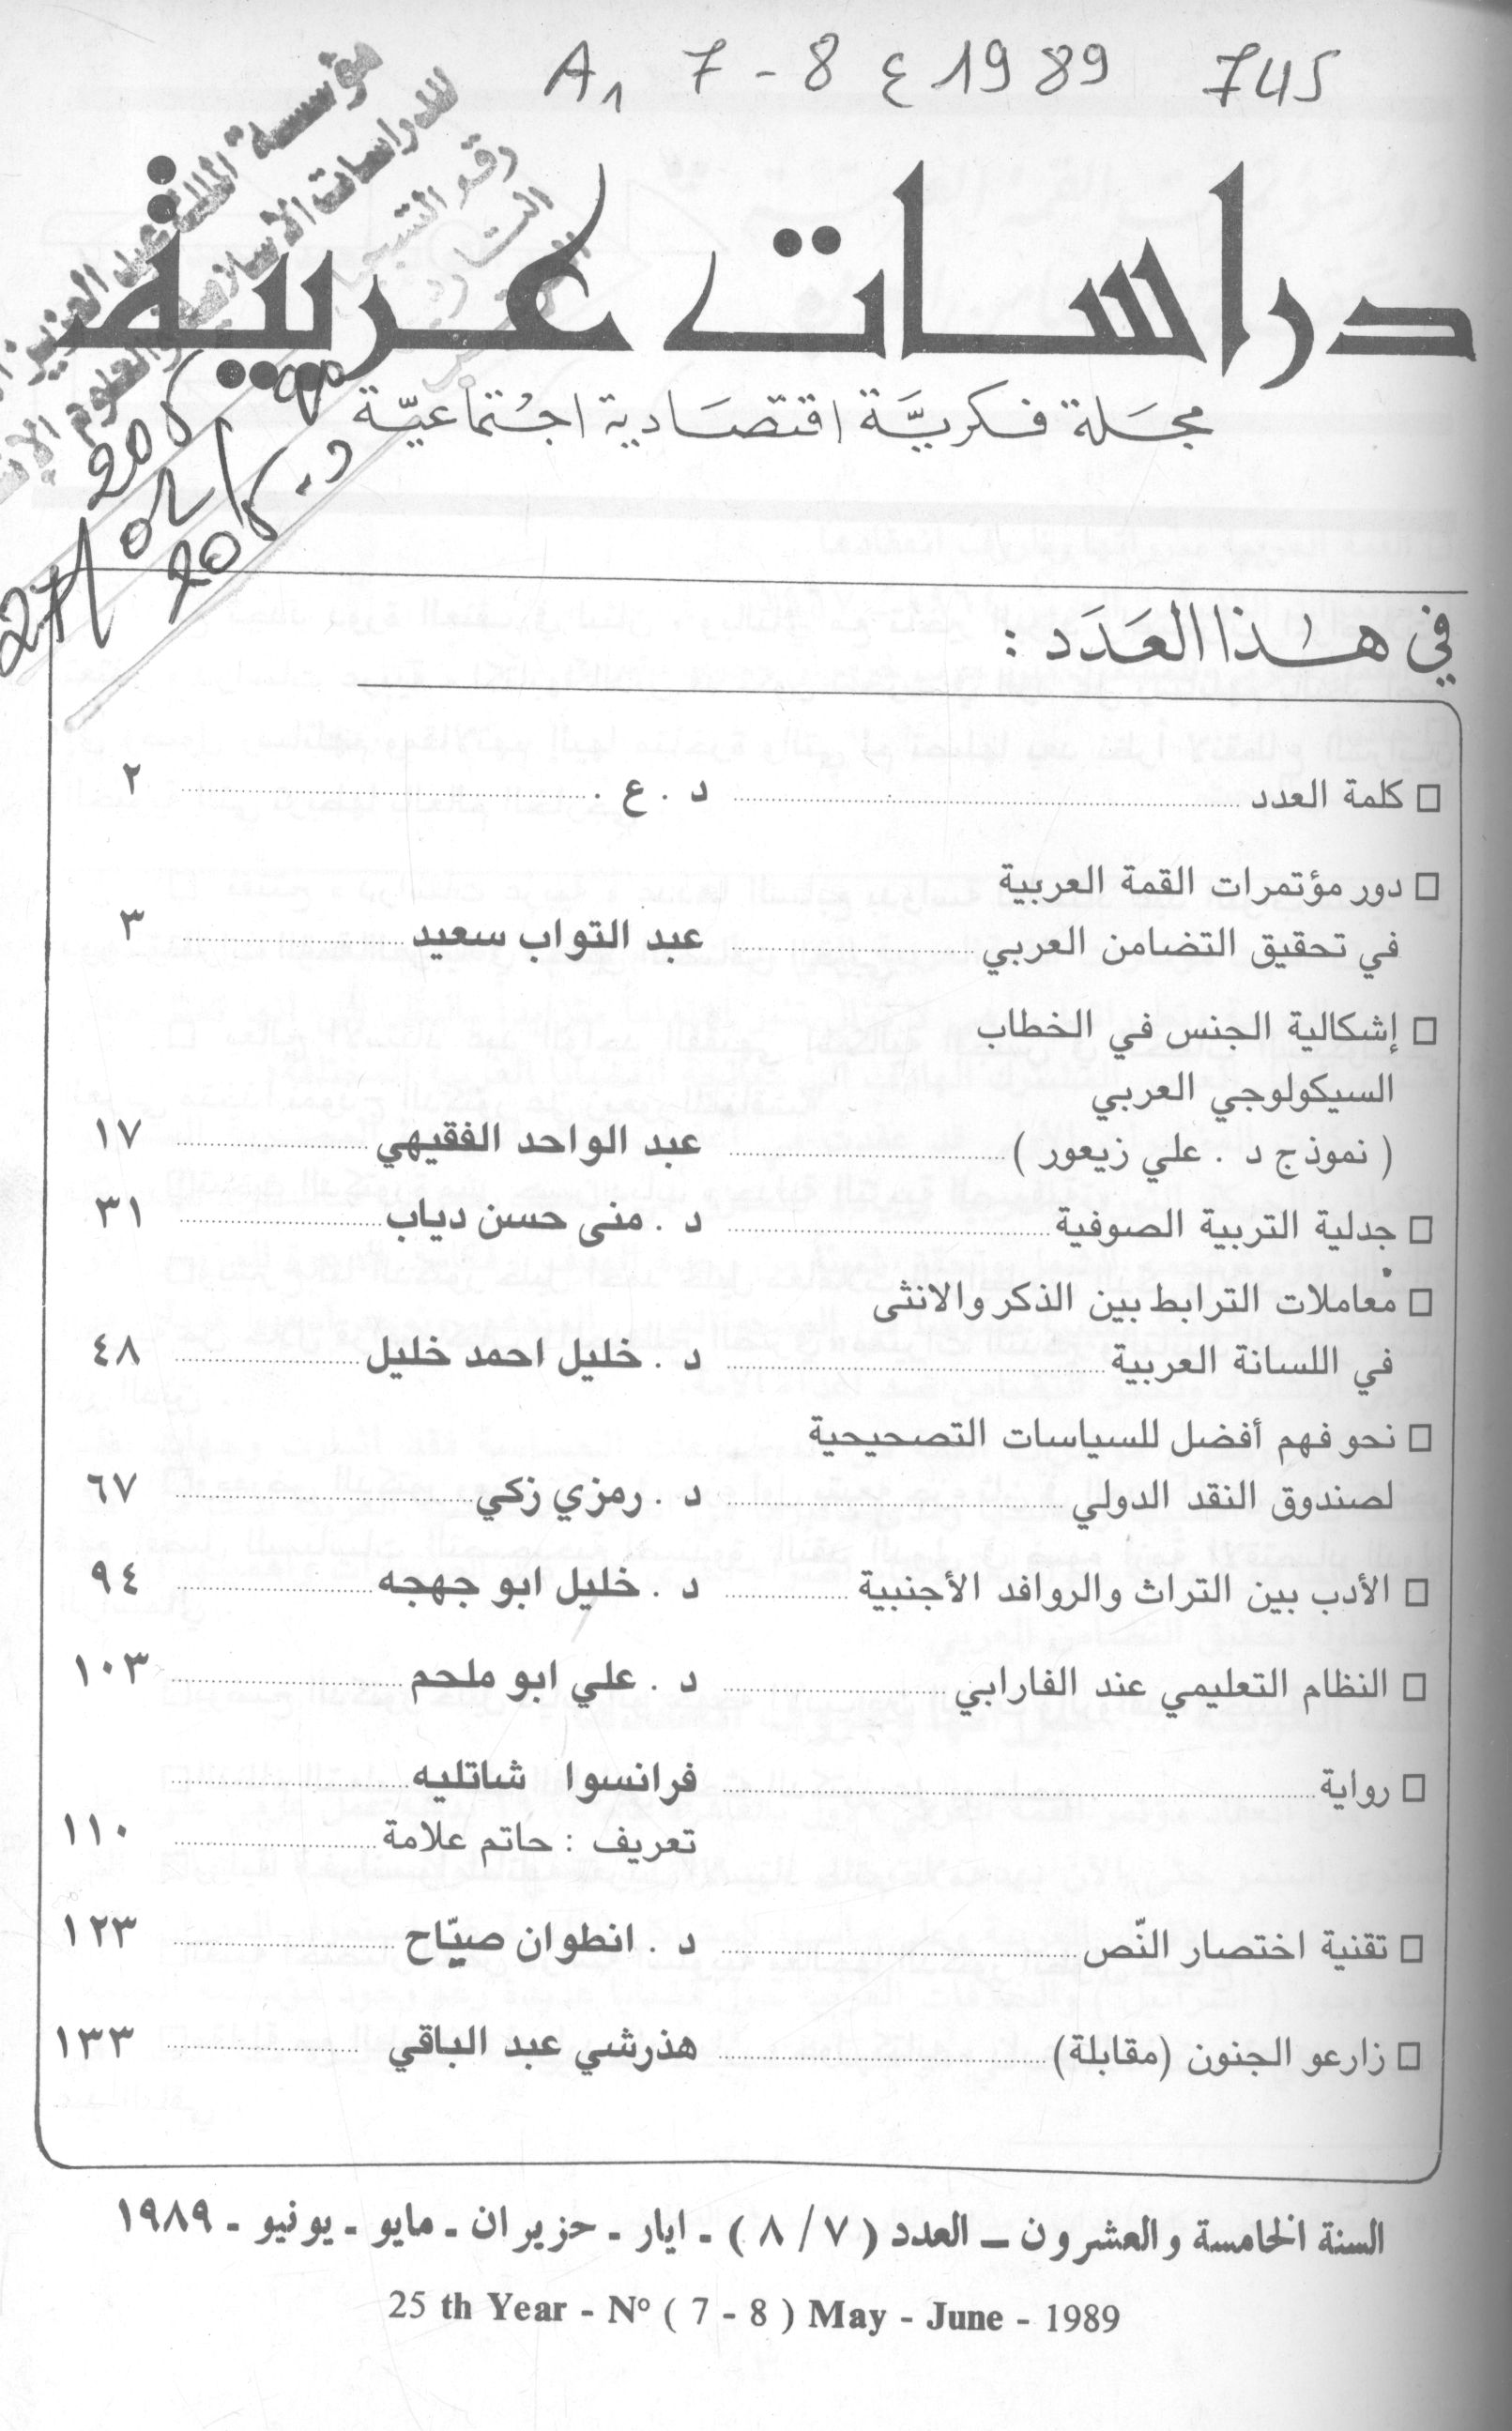 A1 7-8 ع 1989 745
مؤسسة الملك عبد العزيز
للدراسات الاسلامية والعلوم
دراسات عربية
مجلة فكريَّة اقتصَادية اجتماعيّة
في هذا العَدَد :
□ كلمة العدد د . ع . ٢
□ دور مؤتمرات القمة العربية
في تحقيق التضامن العربي عبد التواب سعيد ٣
□ إشكالية الجنس في الخطاب
السيكولوجي العربي
( نموذج د . علي زيعور ) عبد الواحد الفقيهي ١٧
□ جدلية التربية الصوفية د . منى حسن دياب ٣١
□ معاملات الترابط بين الذكر والانثى
في اللسانة العربية د . خليل احمد خليل ٤٨
□ نحو فهم أفضل للسياسات التصحيحية
لصندوق النقد الدولي د . رمزي زكي ٦٧
□ الأدب بين التراث والروافد الأجنبية د . خليل ابو جهجه ٩٤
□ النظام التعليمي عند الفارابي د . علي ابو ملحم ١٠٣
□ رواية فرانسوا شاتليه
تعريف : حاتم علامة ١١٠
□ تقنية اختصار النّص د . انطوان صيّاح ١٢٣
□ زارعو الجنون (مقابلة) هذرشي عبد الباقي ١٣٣
السنة الخامسة والعشرون ـ العدد ( ٧ / ٨ ) ـ ايار ـ حزيران ـ مايو ـ يونيو ـ ١٩٨٩
25 th Year - N° ( 7 - 8 ) May - June - 1989